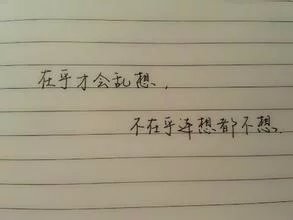 在乎才会乱想，
不在乎连想都不想.